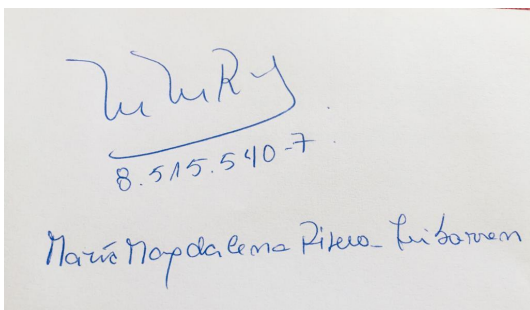 MMRI
8.515.540-7
María Magdalena Rivero Iribarren